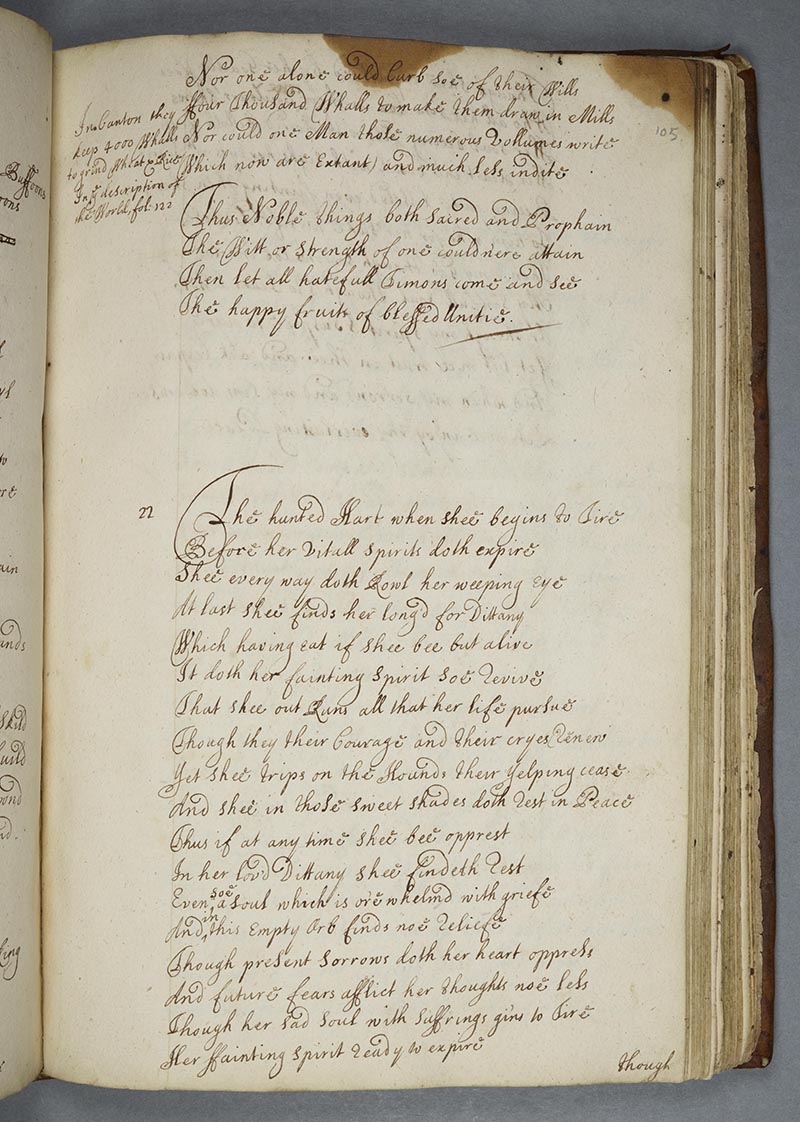 105
Nor one alone could Curb soe of their Wills
ffour Thousand Whalls to make them draw in Mills
Nor could one Man those numerous Vollumes write
Which now are Extant) and much Less indite
In Canton they
keep 4000 Whalls
to grind Wheat & Rice
In ye description of
the World, fol: 122
Thus Noble things both Sacred and Prophain
The Witt or Strength of one could nere attain
Then let all hatefull Timons come and see
The happy fruits of blessed Unitie.
22
The hunted Hart when shee begins to Tire
Before her Vitall Spirits doth expire
Shee every way doth Rowl her weeping Eye
At last shee finds her long'd for Dittany
Which having eat if shee bee but alive
It doth her fainting Spirit soe revive
That shee out Runs all that her life pursue
Though they their Courage and their cryes Renew
Yet shee trips on the Hounds their yelping cease
And shee in those sweet shades doth rest in Peace
Thus if at any time shee bee opprest
In her lov'd Dittany shee findeth rest
Even soe a soul which is o're whelmd with griefe
And in this Empty Orb finds noe reliefe
Though present Sorrows doth her heart oppress
And future fears afflict her thoughts noe less
Though her sad Soul with Suffrings gins to Tire
Her ffainting Spirit ready to expire
though